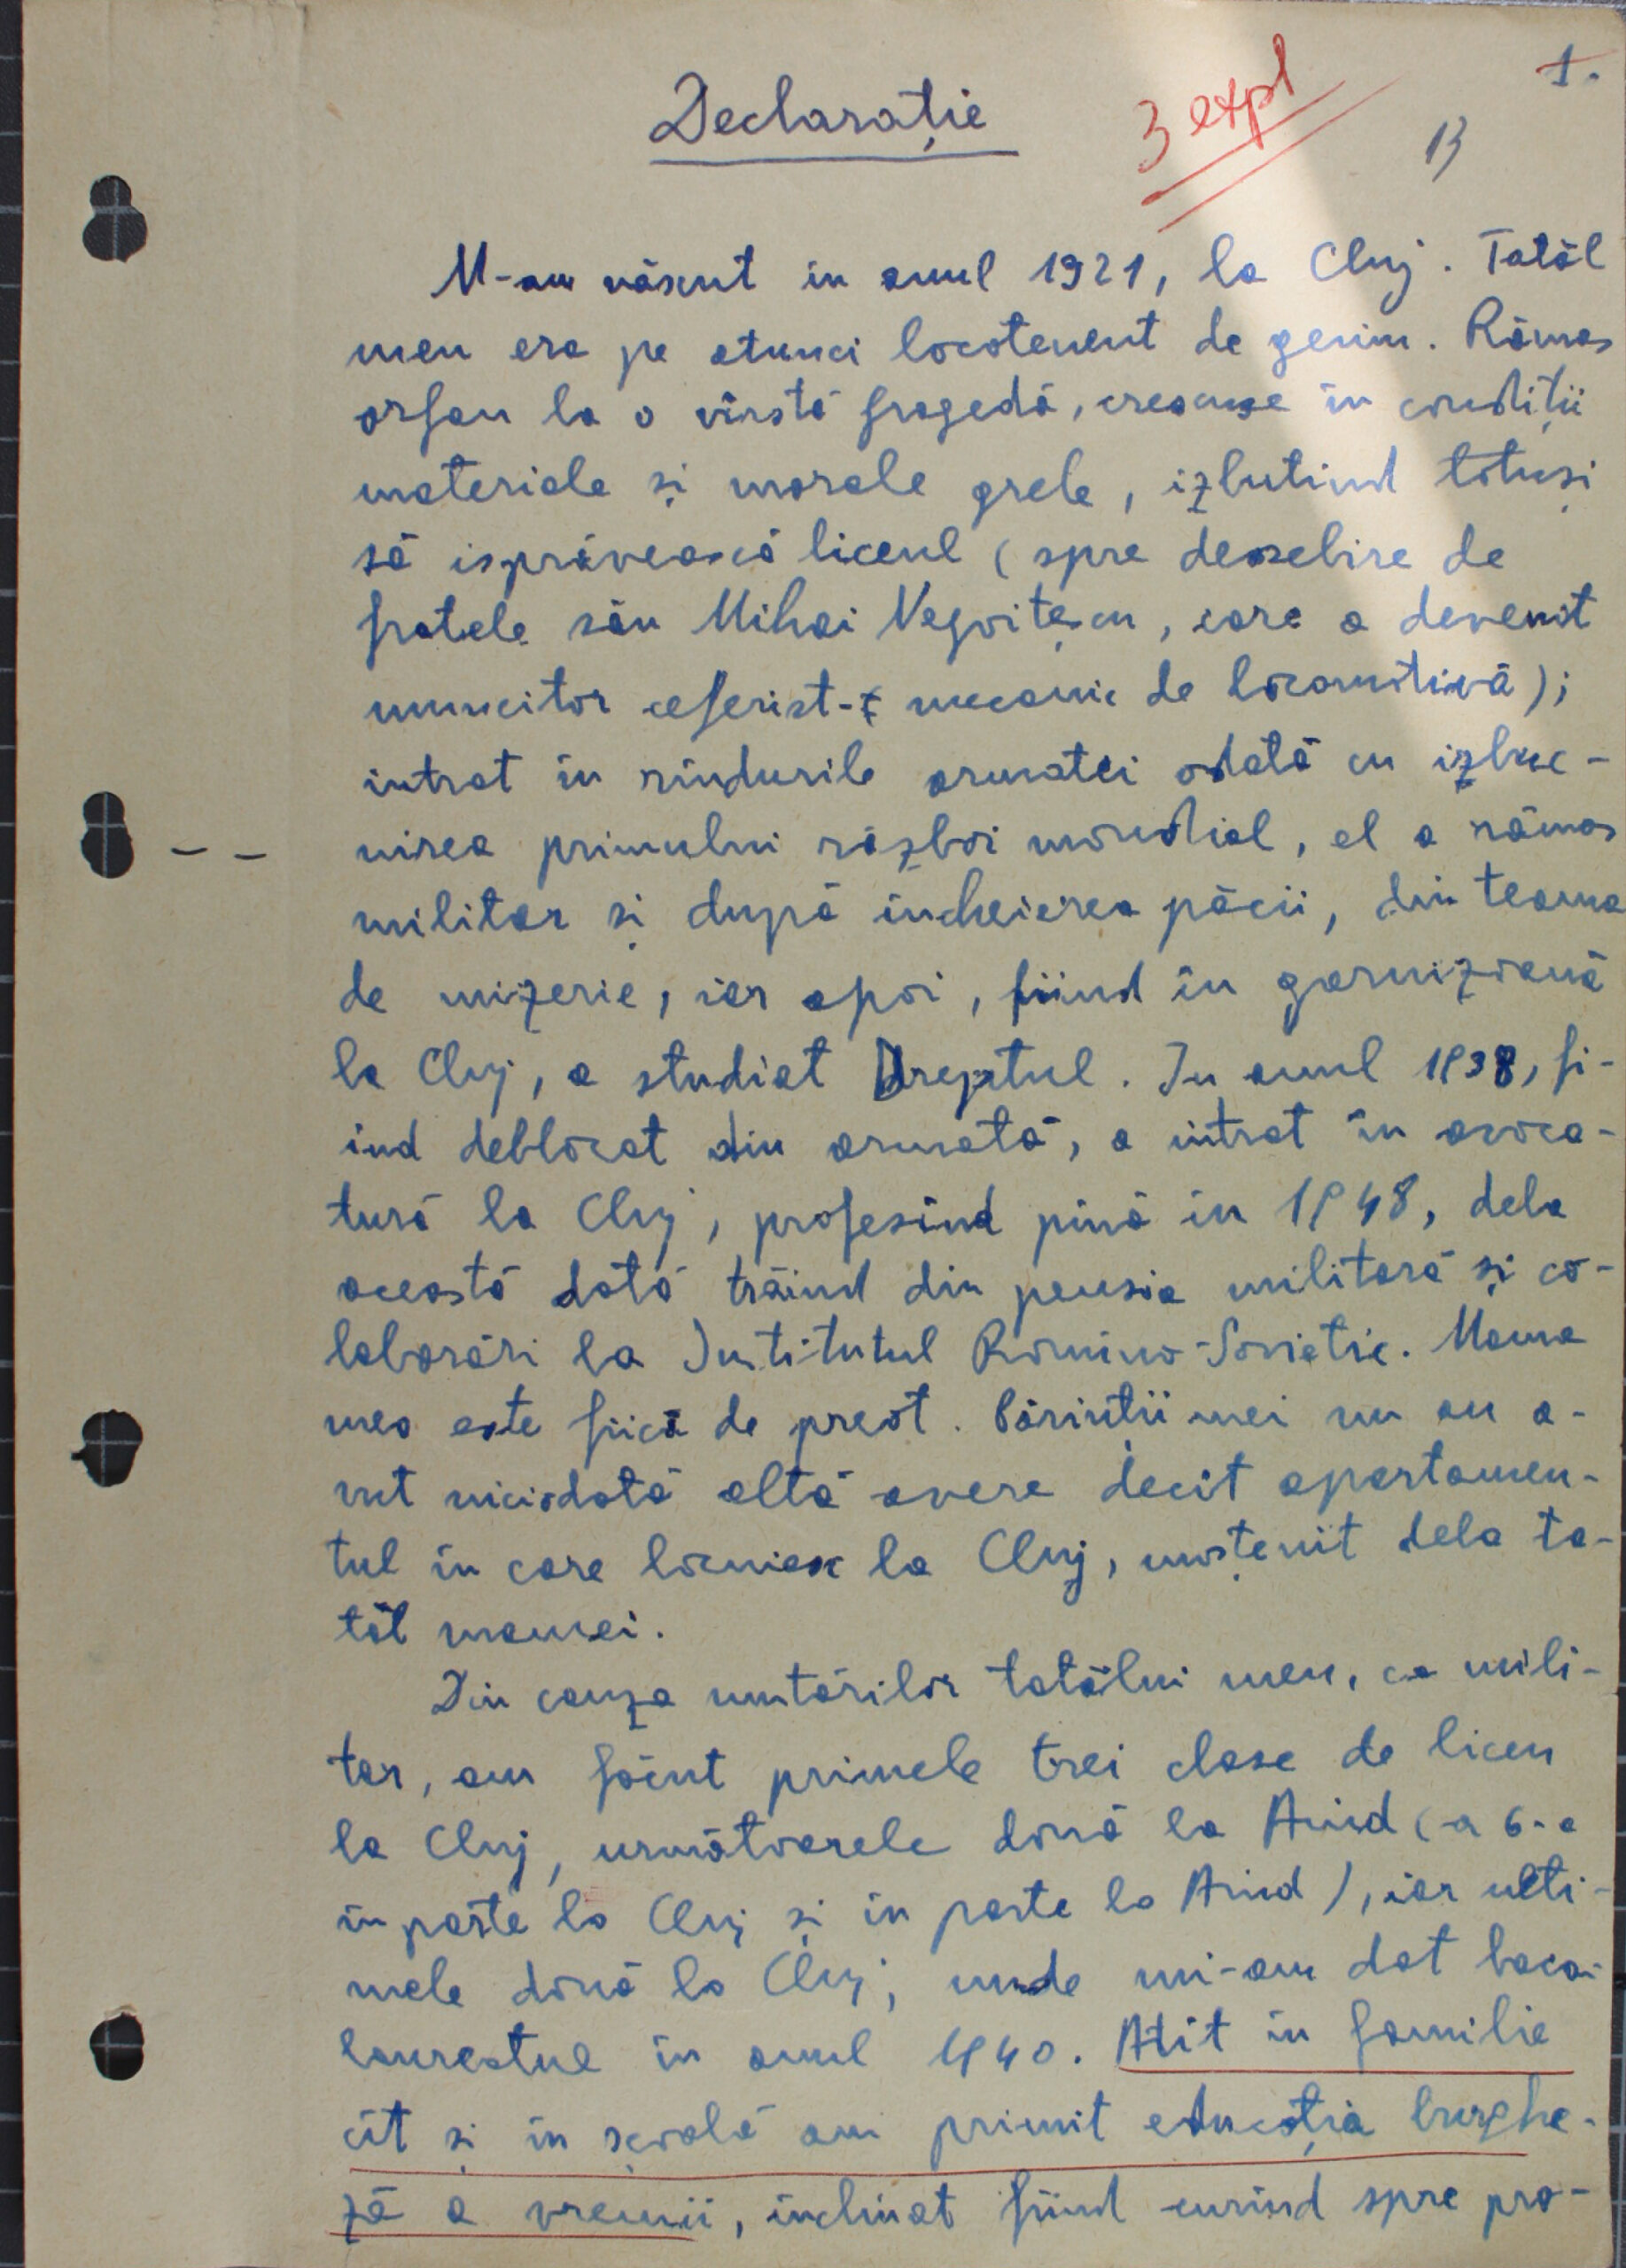 1.
Declarație
3 expl
13
M-am născut în anul 1921, la Cluj. Tatăl
meu era pe atunci locotenent de geniu. Rămas
orfan la o vîrstă fragedă, crescuse în condiții
materiale și morale grele, izbutind totuși
să isprăvească liceul (spre deosebire de
fratele său Mihai Negoițescu, care a devenit
muncitor ceferist - mecanic de locomotivă);
intrat în rîndurile armatei odată cu izbuc-
nirea primului război mondial, el a rămas
militar și după încheierea păcii, din teama
de mizerie, iar apoi, fiind în garnizoană
la Cluj, a studiat Dreptul. In anul 1938, fi-
ind deblocat din armată, a intrat în avoca-
tură la Cluj, profesînd pînă în 1948, dela
această dată trăind din pensia militară și co-
laborări la Institutul Romîno-Sovietic. Mama
mea este fiică de preot. Părinții mei nu au a-
vut niciodată altă avere decît apartamen-
tul în care locuiesc la Cluj, moștenit dela ta-
tăl mamei.
Din cauza mutărilor tatălui meu, ca mili-
tar, am făcut primele trei clase de liceu
la Cluj, următoarele două la Aiud (a 6-a
în parte la Cluj și în parte la Aiud), iar ulti-
mele două la Cluj, unde mi-am dat baca-
laureatul în anul 1940. Atît în familie
cît și în școală am primit educația burghe-
ză a vremii, înclinat fiind curînd spre pro-